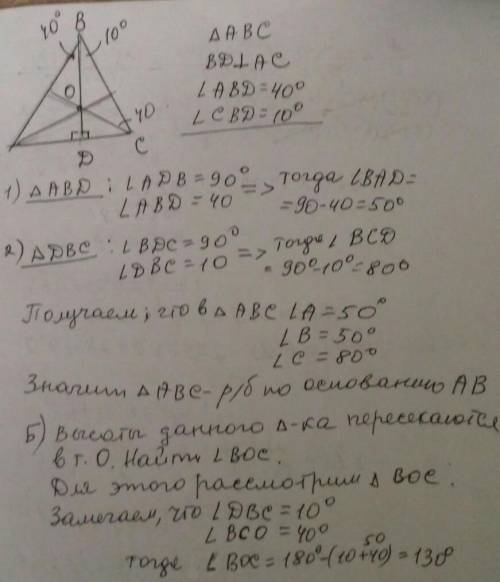 40° B 10°
O
40
D C
△ABC
BD⊥AC
∠ABD=40°
∠CBD=10°
1) △ABD; ∠ADB=90° => тогда ∠BAD=
∠ABD=40 =90-40=50°
2) △DBC: ∠BDC=90° => тогда ∠BCD
∠DBC=10 = 90°-10°=80°
Получаем; что в △ABC ∠A=50°
∠B=50°
∠C=80°
Значит △ABC- р/б по основанию AB
Б) Высоты данного △-ка пересекаются
в т. O. Найти ∠BOC.
Для этого рассмотрим △BOC.
Замечаем, что ∠DBC=10°
∠BCO=40°
50
тогда ∠BOC=180°-(10+40)=130°